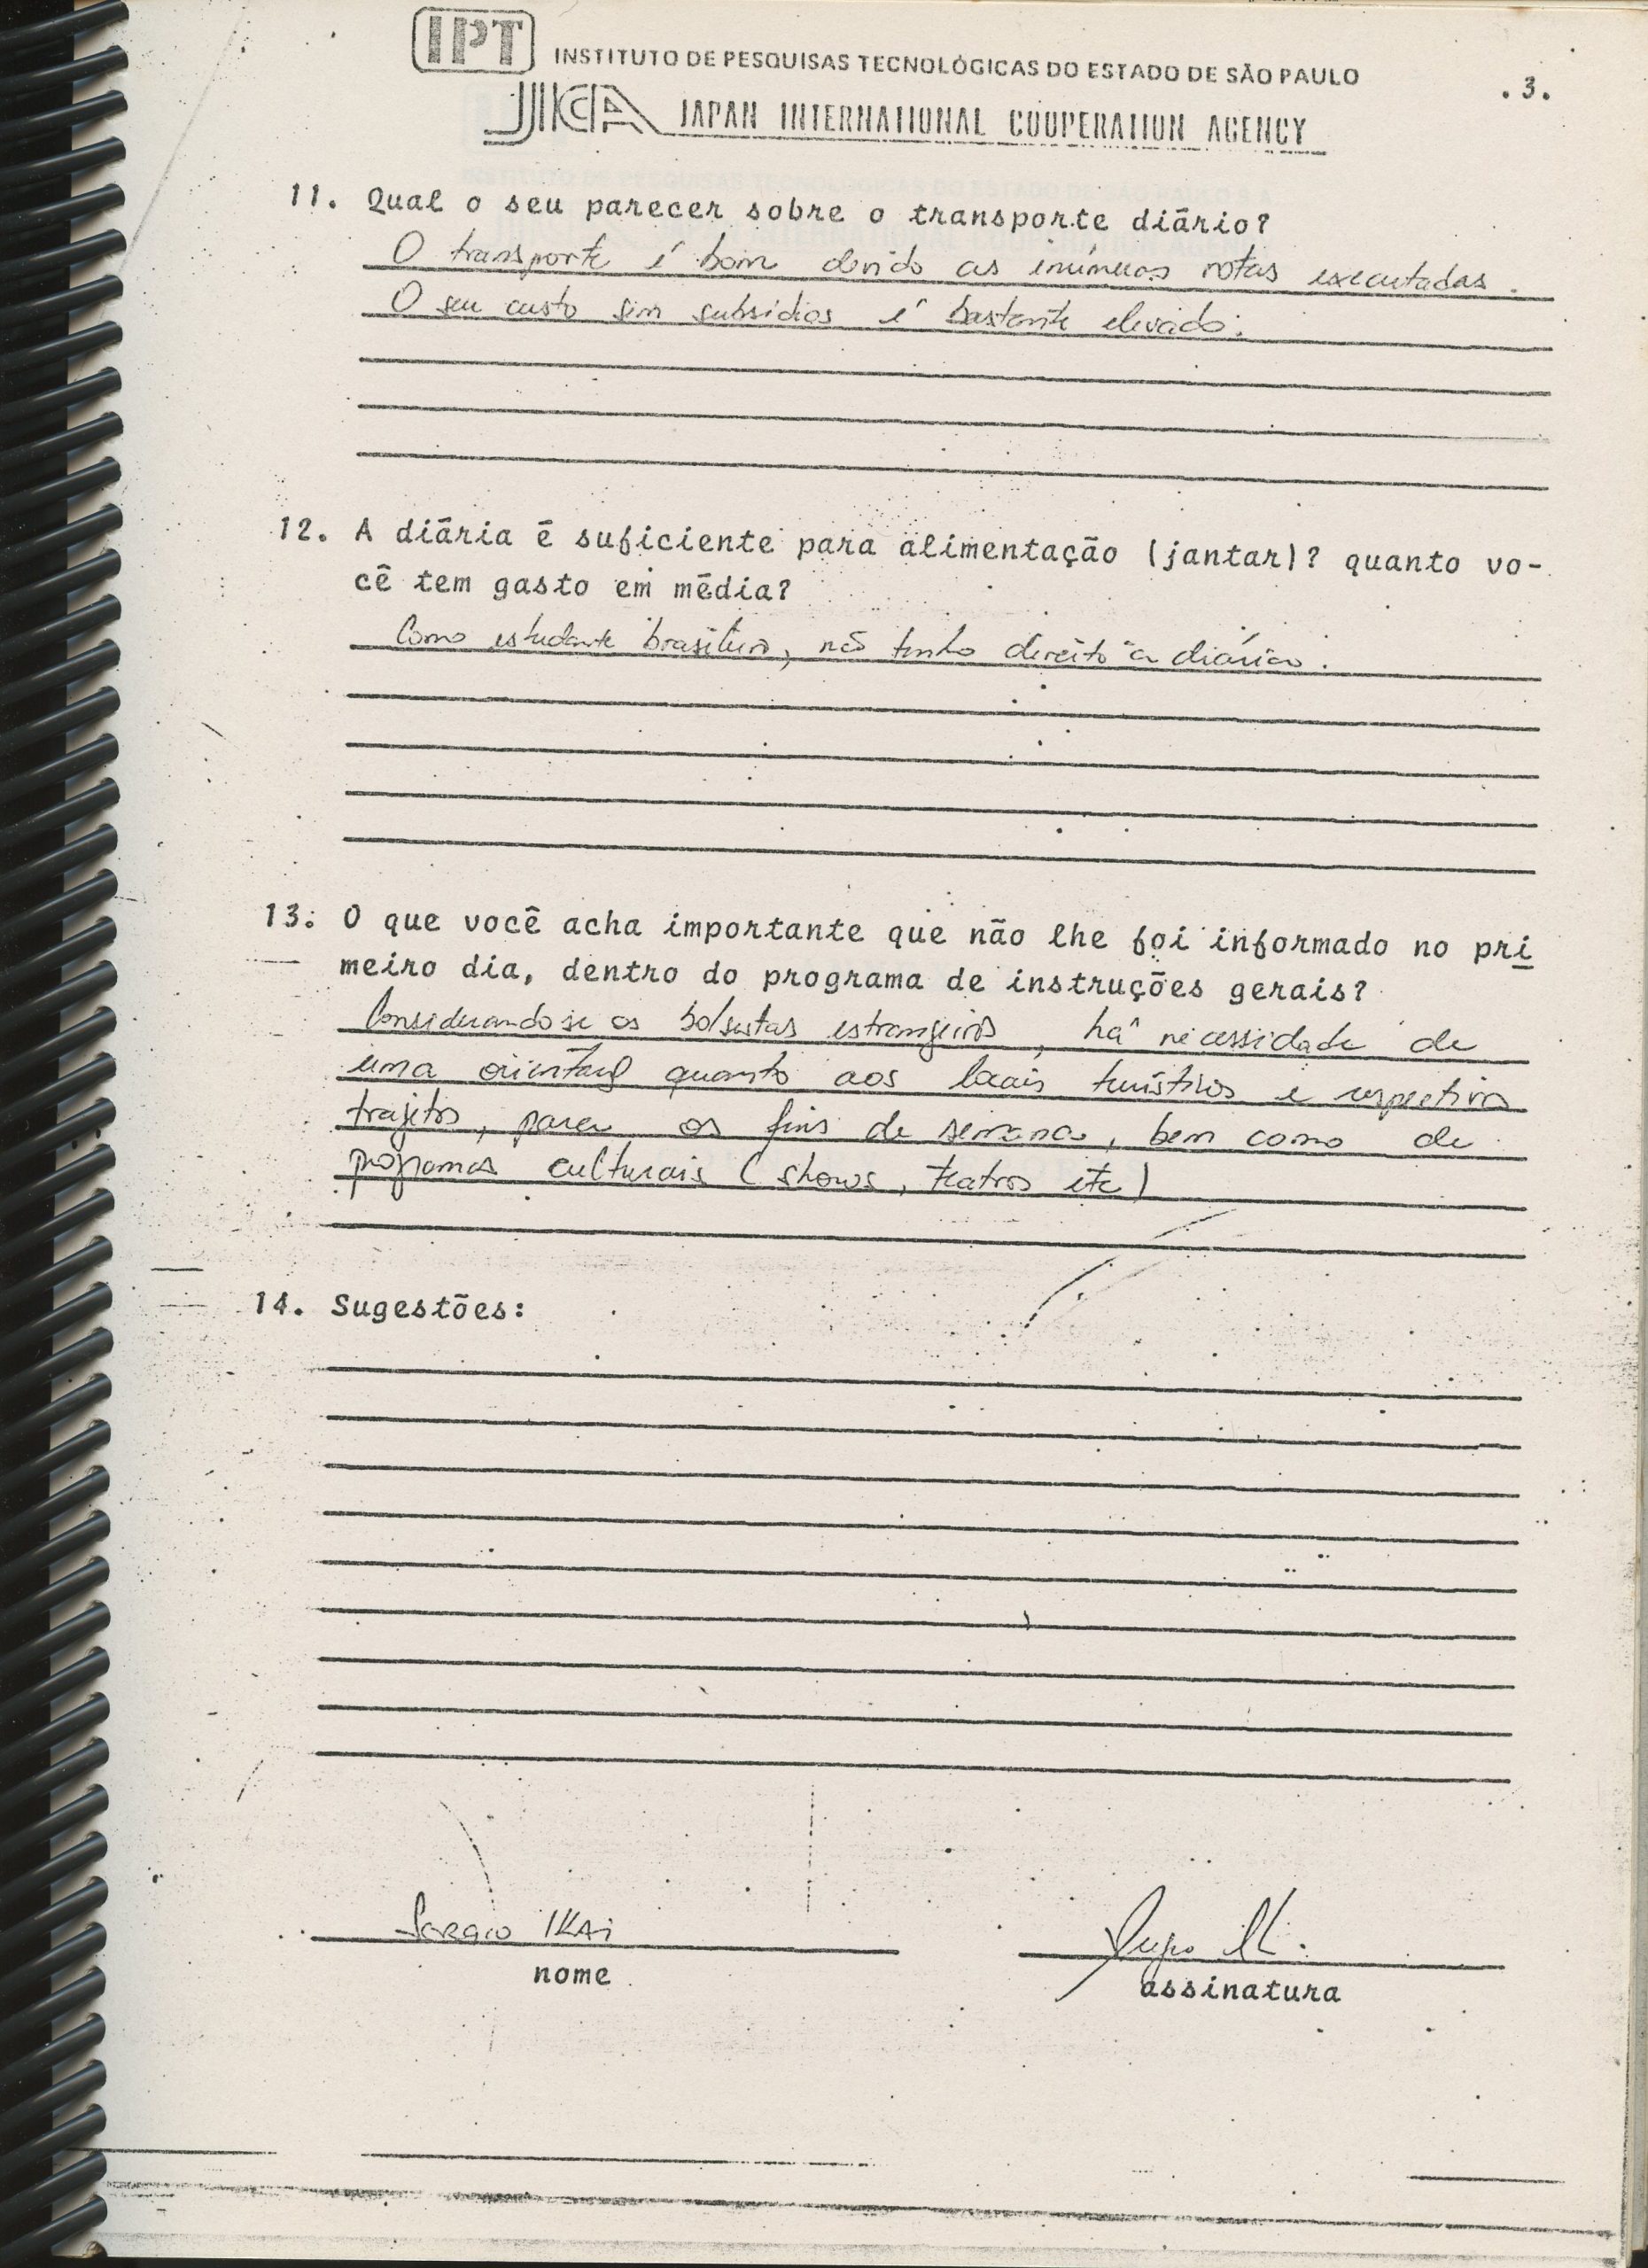 IPT INSTITUTO DE PESQUISAS TECNOLÓGICAS DO ESTADO DE SÃO PAULO
.3.
JICA JAPAN INTERNATIONAL COOPERATION AGENCY
11. Qual o seu parecer sobre o transporte diário?
O transporte é bom devido as inúmeras rotas executadas.
O seu custo sem subsídios é bastante elevado.
12. A diária é suficiente para alimentação (jantar)? quanto vo-
cê tem gasto em média?
Como estudante brasileiro, não tenho direito à diária.
13. O que você acha importante que não lhe foi informado no pri
meiro dia, dentro do programa de instruções gerais?
Considerando-se os bolsistas estrangeiros, há necessidade de
uma quanto aos locais turísticos e respectivos
trajetos, para os fins de semana, bem como de
programas culturais (shows, teatros etc)
14. Sugestões:
Sergio IKAi
nome
assinatura